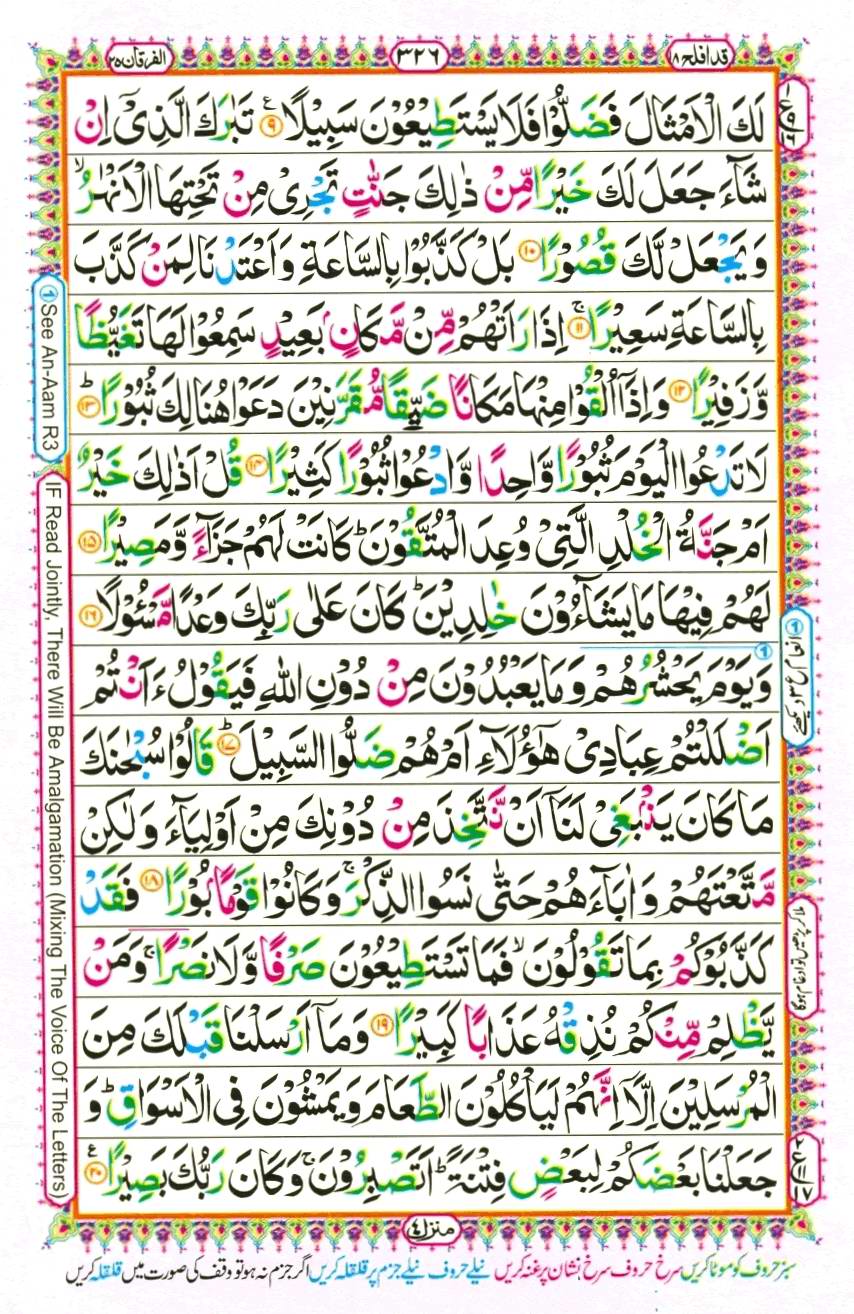 قد افلح ۱۸
۳۲۶
الفرقان ۲۵
لَكَ الْاَمْثَالَ فَضَلُّوْا فَلَا يَسْتَطِيْعُوْنَ سَبِيْلًا ۹ تَبٰرَكَ الَّذِيْۤ اِنْ
شَآءَ جَعَلَ لَكَ خَيْرًا مِّنْ ذٰلِكَ جَنّٰتٍ تَجْرِيْ مِنْ تَحْتِهَا الْاَنْهٰرُ ۙ
وَيَجْعَلْ لَّكَ قُصُوْرًا ۱۰ بَلْ كَذَّبُوْا بِالسَّاعَةِ وَاَعْتَدْنَا لِمَنْ كَذَّبَ
بِالسَّاعَةِ سَعِيْرًا ۚ ۱۱ اِذَا رَاَتْهُمْ مِّنْ مَّكَانٍۭ بَعِيْدٍ سَمِعُوْا لَهَا تَغَيُّظًا
وَّزَفِيْرًا ۱۲ وَاِذَاۤ اُلْقُوْا مِنْهَا مَكَانًا ضَيِّقًا مُّقَرَّنِيْنَ دَعَوْا هُنَالِكَ ثُبُوْرًا ؕ ۱۳
لَا تَدْعُوا الْيَوْمَ ثُبُوْرًا وَّاحِدًا وَّادْعُوْا ثُبُوْرًا كَثِيْرًا ۱۴ قُلْ اَذٰلِكَ خَيْرٌ
اَمْ جَنَّةُ الْخُلْدِ الَّتِيْ وُعِدَ الْمُتَّقُوْنَ ؕ كَانَتْ لَهُمْ جَزَآءً وَّمَصِيْرًا ۱۵
لَهُمْ فِيْهَا مَا يَشَآءُوْنَ خٰلِدِيْنَ ؕ كَانَ عَلٰى رَبِّكَ وَعْدًا مَّسْـُٔوْلًا ۱۶
وَيَوْمَ يَحْشُرُهُمْ وَمَا يَعْبُدُوْنَ مِنْ دُوْنِ اللّٰهِ فَيَقُوْلُ ءَاَنْتُمْ
اَضْلَلْتُمْ عِبَادِيْ هٰۤؤُلَآءِ اَمْ هُمْ ضَلُّوا السَّبِيْلَ ؕ ۱۷ قَالُوْا سُبْحٰنَكَ
مَا كَانَ يَنْۢبَغِيْ لَنَاۤ اَنْ نَّتَّخِذَ مِنْ دُوْنِكَ مِنْ اَوْلِيَآءَ وَلٰكِنْ
مَّتَّعْتَهُمْ وَاٰبَآءَهُمْ حَتّٰى نَسُوا الذِّكْرَ ۚ وَكَانُوْا قَوْمًۢا بُوْرًا ۱۸ فَقَدْ
كَذَّبُوْكُمْ بِمَا تَقُوْلُوْنَ ۙ فَمَا تَسْتَطِيْعُوْنَ صَرْفًا وَّلَا نَصْرًا ۚ وَمَنْ
يَّظْلِمْ مِّنْكُمْ نُذِقْهُ عَذَابًا كَبِيْرًا ۱۹ وَمَاۤ اَرْسَلْنَا قَبْلَكَ مِنَ
الْمُرْسَلِيْنَ اِلَّاۤ اِنَّهُمْ لَيَاْكُلُوْنَ الطَّعَامَ وَيَمْشُوْنَ فِي الْاَسْوَاقِ ؕ وَ
جَعَلْنَا بَعْضَكُمْ لِبَعْضٍ فِتْنَةً ؕ اَتَصْبِرُوْنَ ۚ وَكَانَ رَبُّكَ بَصِيْرًا ۲۰
① See An-Aam R3
IF Read Jointly, There Will Be Amalgamation (Mixing The Voice Of The Letters)
منزل ۴
سبز حروف کو موٹا کریں سرخ حروف سرخ نشان پر غنہ کریں نیلے حروف نیلے جزم پر قلقلہ کریں اگر جزم نہ ہو تو وقف کی صورت میں قلقلہ کریں